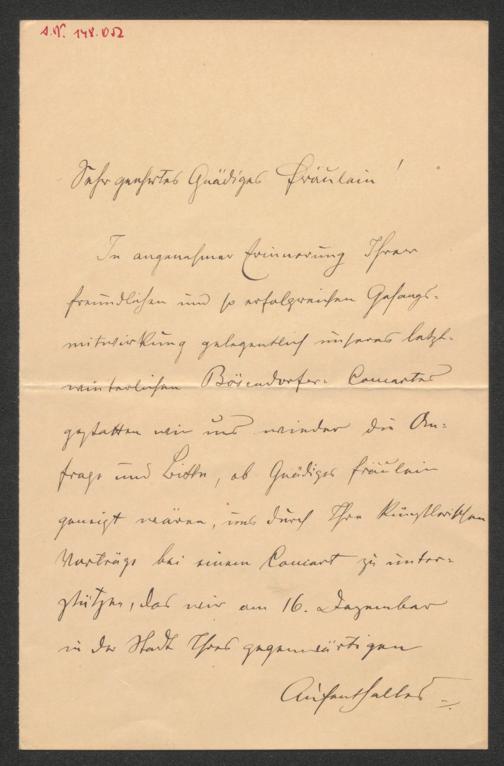 A.N. 148.052
Sehr geehrtes Gnädiges Fräulein!
In angenehmer Erinnerung Ihrer
freundlichen und so erfolgreichen Gesangs-
mitwirkung gelegentlich unseres letzt-
winterlichen Bösendorfer-Concertes
gestatten wir uns wieder die An-
frage und Bitte, ob Gnädiges Fräulein
geneigt wären, uns durch Ihre künstlerischen
Vorträge bei einem Concert zu unter-
stützen, das wir am 16. Dezember
in der Stadt Ihres gegenwärtigen
Aufenthaltes